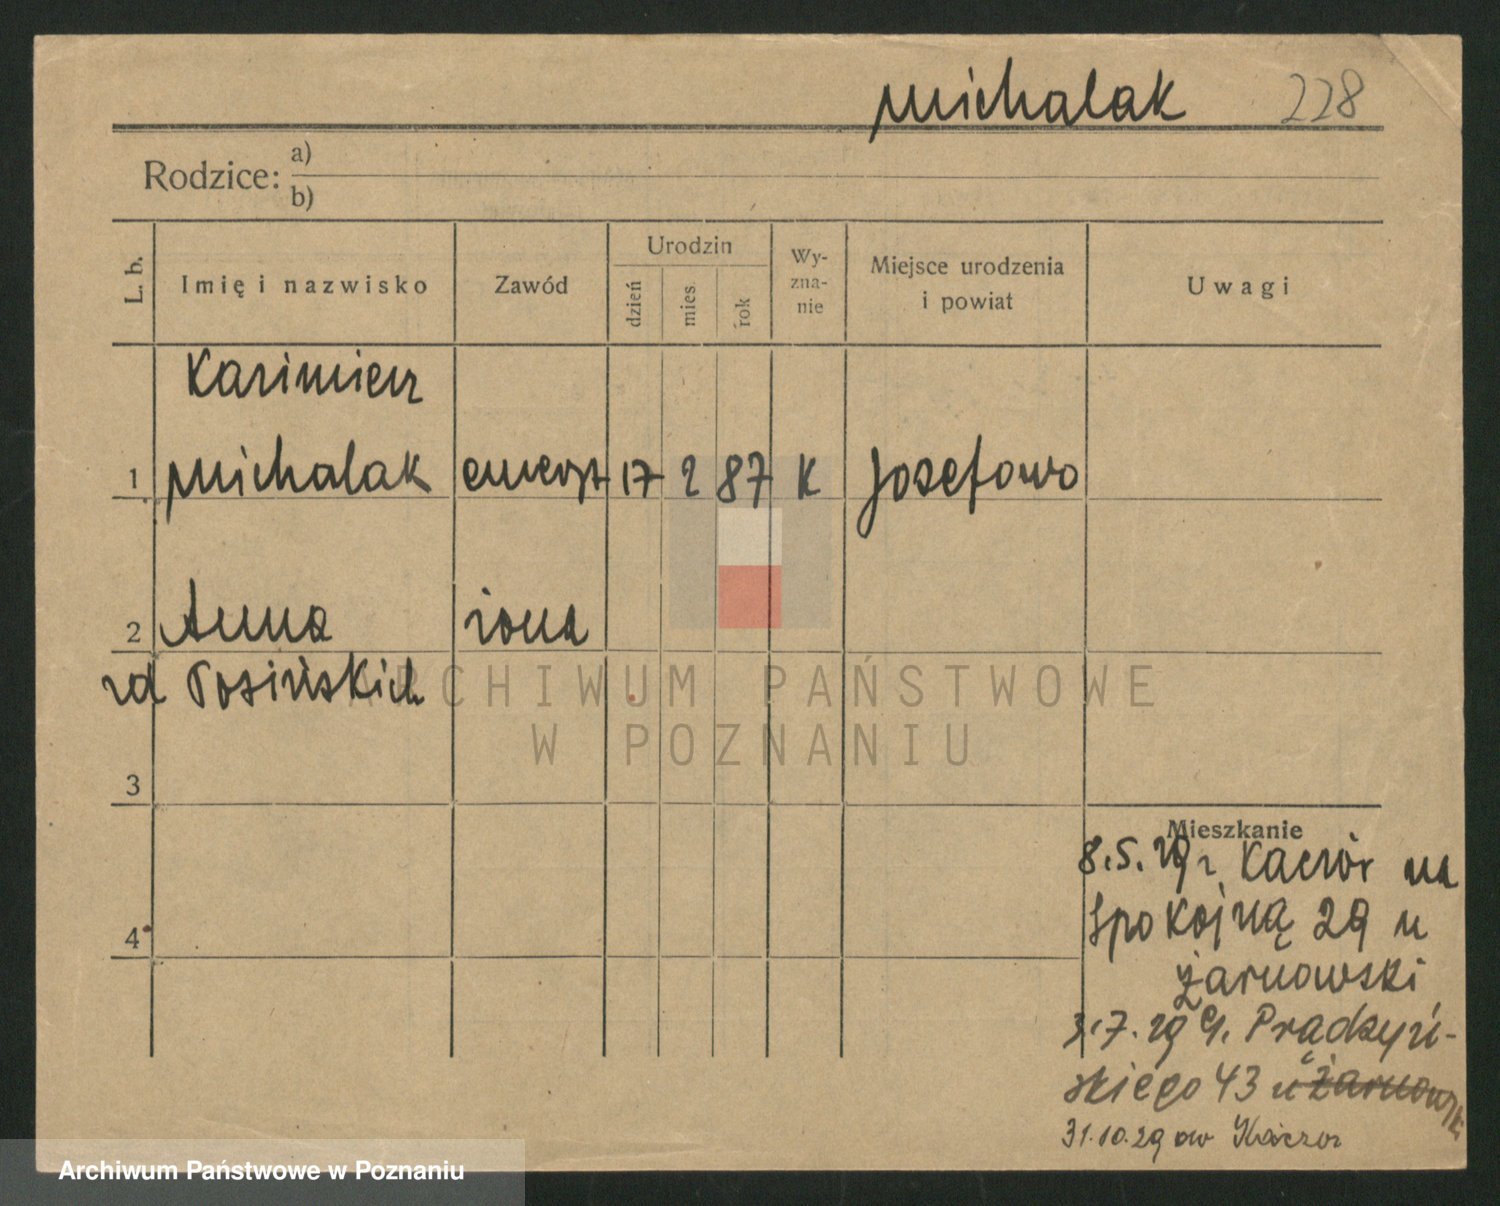 Michalak 228
Rodzice: a)
b)
L. b. Imię i nazwisko Zawód Urodzin dzień mies. rok Wy-zna-nie Miejsce urodzenia i powiat Uwagi
Kazimierz
1 Michalak emeryt 17 2 87 K Józefowo
2 Anna żona
zd Posińskich
3
4
Mieszkanie
8.5.29 r. Kaczór na
Spokojną 29 u
Żarnowski
3.7.29 G. Prądzyń-
skiego 43 u Żarnowski
31.10.29 do Kaczor
ARCHIWUM PAŃSTWOWE
W POZNANIU
Archiwum Państwowe w Poznaniu